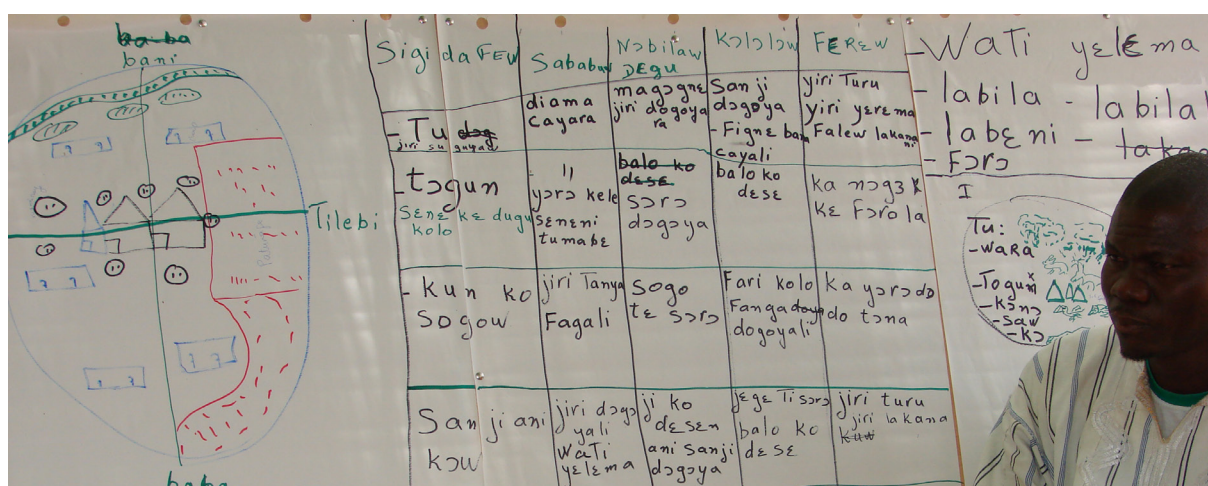 bani
Tilebi
baba
Sigi da FEW
Sababuw
Nɔbilaw
DEGU
Kɔlɔlɔw
FEREW
- Tu
jiri su guyad
diama
cayara
magɔgnɛ
jiri dɔgoya
ra
San ji
dɔgɔya
- Fignɛ ban
cayali
yiri Turu
yiri yɛrɛma
Falew lakana
ni
- tɔgun
Sɛnɛ kɛ dugu
kolo
- 11
yɔrɔ kele
sɛnɛni
tumabɛ
balo ko
dɛsɛ
sɔrɔ
dɔgɔya
balo ko
dɛsɛ
ka nɔgɔ
kɛ Fɔrɔ la
- Kun ko
sogow
jiri Tanya
Fagali
Sogo
tɛ sɔrɔ
Fari kolo
Fanga
dogoyali
ka yɔrɔ dɔ
do tɔna
San ji ani
kɔw
jiri dɔgɔ
yali
Wati
yɛlɛma
ji ko
dɛsɛn
ani sanji
dɔgɔya
jɛgɛ Ti sɔrɔ
balo ko
dɛsɛ
jiri turu
jiri lakana
- Wati yɛlɛma
- labila - labila
- labɛni -
- Fɔrɔ
I
Tu:
- waRa
- Togun
- kɔnɔ
- saw
- kɔ